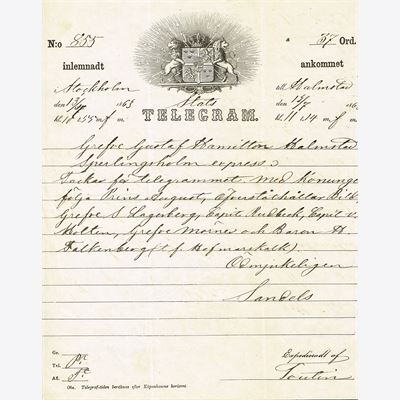 N:o 855
a 37 Ord.
inlemnadt
ankommet
Stockholm
Stats
till Halmstad
den 13/7 1863
den 13/7 186
TELEGRAM.
kl. 11 f m.
kl. 11 54 f m.
Grefve Gustaf Hamilton Halmstad
Sperlingsholm express.
Tackar för telegrammet. Med Konungen
följa Prins August, Öfverståthållar Bildt
Grefve S Lagerberg, Capit Rudbeck, Capit v.
Holten, Grefve Mörner och Baron H
Falkenberg (t f Hofmarskalk).
Ödmjukeligen
Sandels
Gr.
Tel.
Af.
Expedieradt af
Obs. Telegraf-tiden beräknas efter Köpenhamns horizont